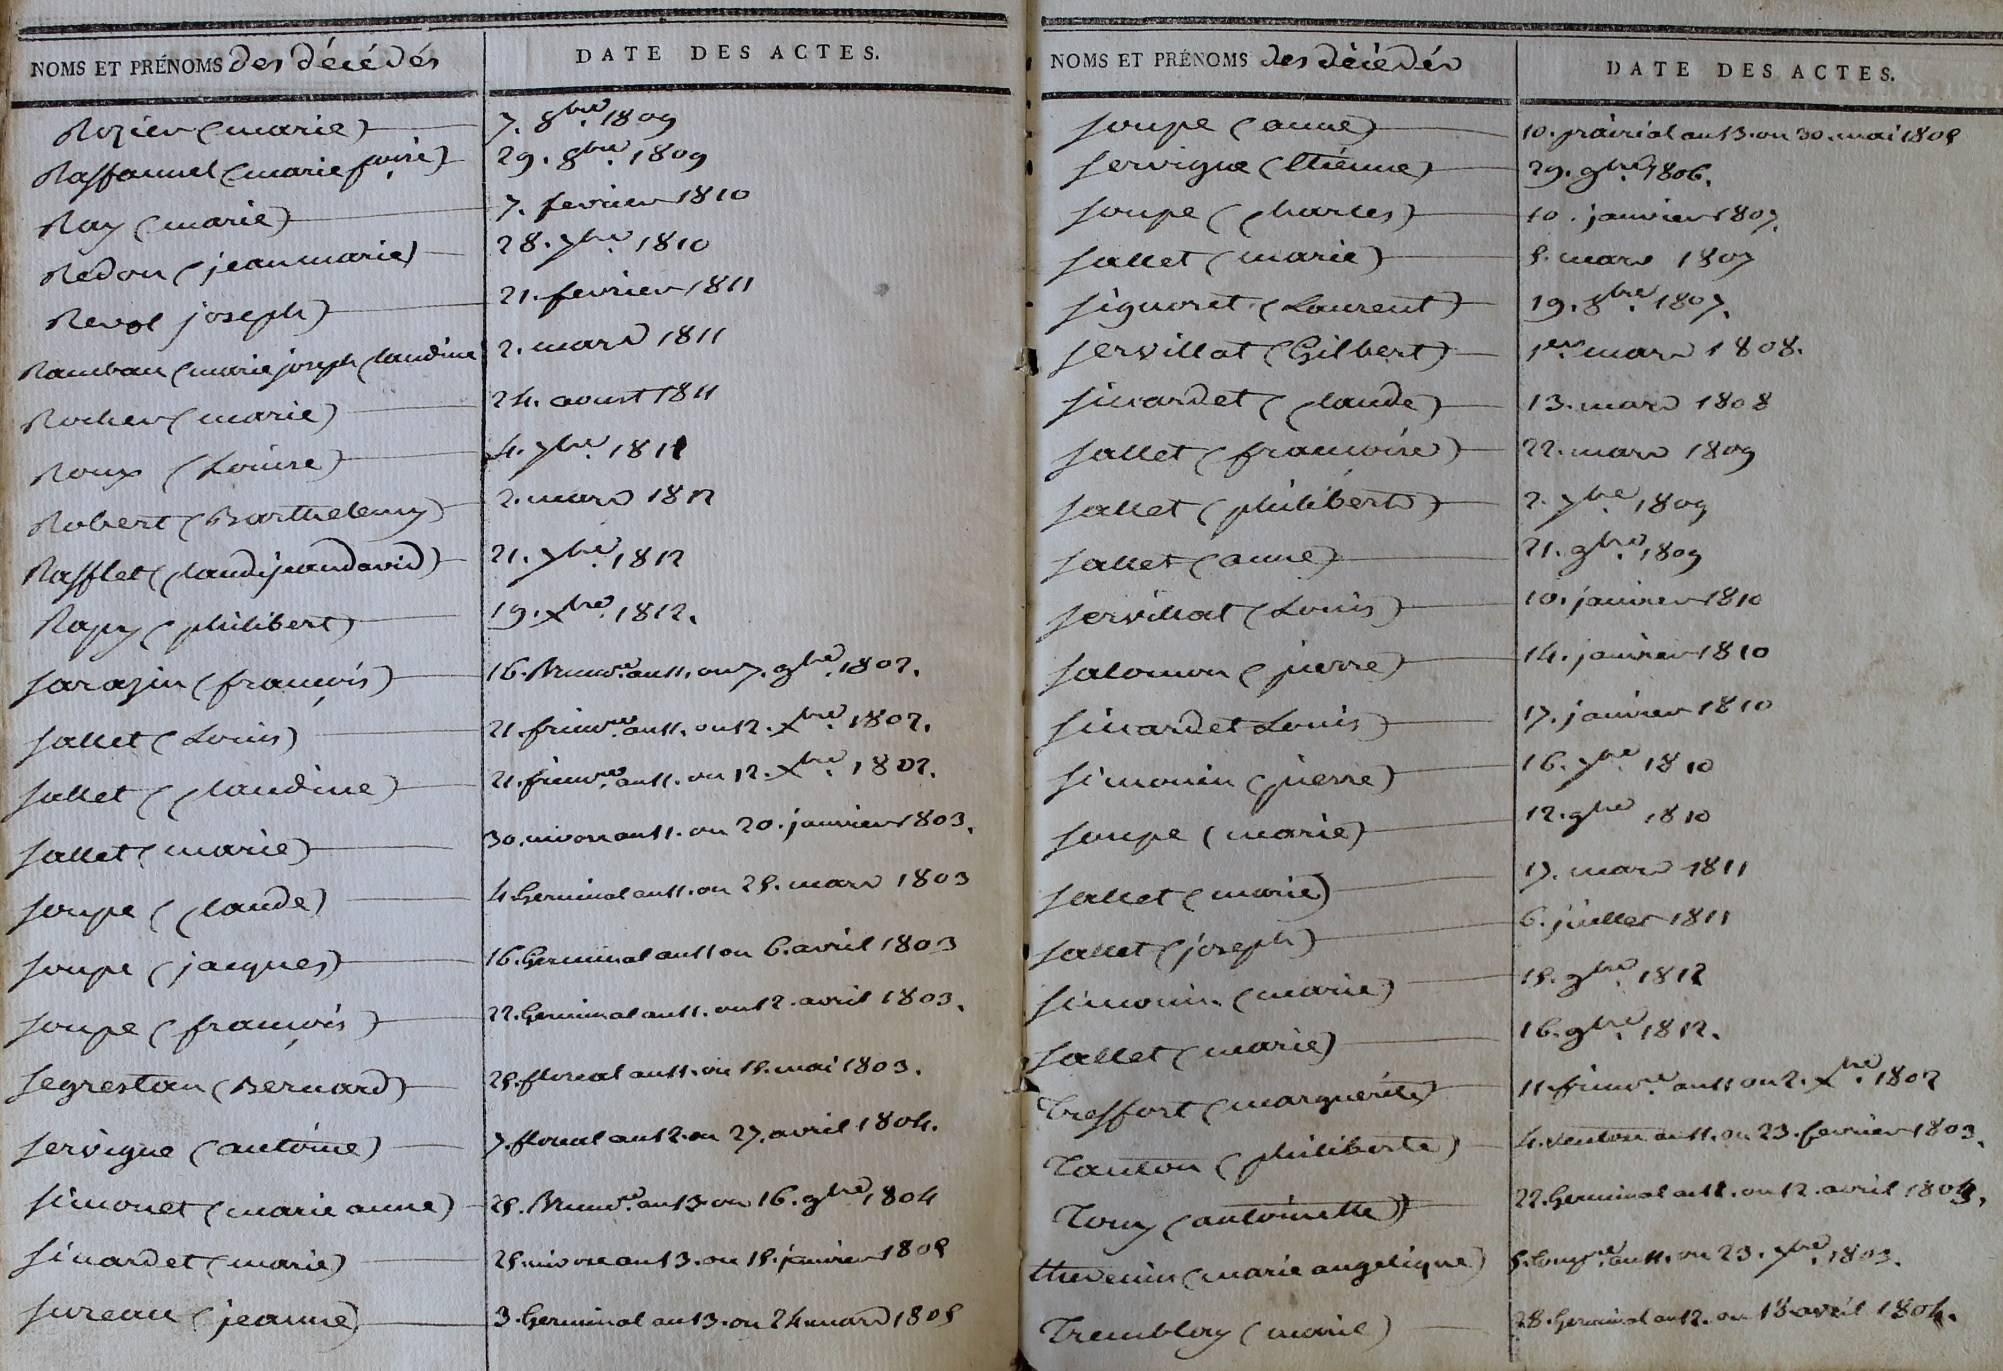 NOMS ET PRÉNOMS des décédés DATE DES ACTES.
Rozier (marie) 7. 8bre. 1809
Raffannel (marie foise) 29. 8bre. 1809
Ray (marie) 7. fevrier 1810
Redon (jean marie) 28. 7bre. 1810
Revol joseph) 21. fevrier 1811
Rambau (marie joseph claudine 2. mars 1811
Rocher (marie) 24. aoust 1811
Roux (Louise) 4. 7bre. 1811
Robert (Barthelemy) 2. mars 1812
Rafflet (claude jean david) 21. 7bre. 1812
Rapy (philibert) 19. Xbre. 1812.
Sarazin (francois) 16. Brumre. an 11. ou 7. 9bre. 1802.
Sallet (Louis) 21. frimre. an 11. ou 12. Xbre. 1802.
Sallet (claudine) 21. frimre. an 11. ou 12. Xbre. 1802.
Sallet (marie) 30. nivose an 11. ou 20. janvier 1803.
Soupe (claude) 4. Germinal an 11. ou 25. mars 1803
Soupe (jacques) 16. Germinal an 11 ou 6. avril 1803
Soupe (françois) 22. Germinal an 11. ou 12. avril 1803.
Segrestan (Bernard) 25. floreal an 11. ou 15. mai 1803.
Servigne (antoine) 7. floreal an 12. ou 27. avril 1804.
Simonet (marie anne) 25. Brumre. an 13 ou 16. 9bre. 1804
Sinardet (marie) 25. nivose an 13. ou 15. janvier 1805
Sureau (jeanne) 3. Germinal an 13. ou 24. mars 1805
NOMS ET PRÉNOMS des décédés DATE DES ACTES.
Soupe (anne) 10. prairial an 13. ou 30. mai 1805
Servigne (Etienne) 29. 9bre. 1806.
Soupe (charles) 10. janvier 1807.
Sallet (marie) 5. mars 1807
Signoret (Laurent) 19. 8bre. 1807.
Servillat (Gilbert) 1er. mars 1808.
Sinardet (claude) 13. mars 1808
Sallet (francoise) 22. mars 1809
Sallet (philibert) 2. 7bre. 1809
Sallet (anne) 21. 9bre. 1809
Servillat (Louis) 10. janvier 1810
Salomon (pierre) 14. janvier 1810
Sinardet Louis) 17. janvier 1810
Simonin (pierre) 16. 7bre 1810
Soupe (marie) 12. 9bre 1810
Sallet (marie) 17. mars 1811
Sallet (joseph) 6. juillet 1811
Simonin (marie) 15. 9bre. 1812
Sallet (marie) 16. 9bre. 1812.
Treffort (marguerite) 11. frimre. an 11 ou 2. Xbre. 1802
Tanton (philiberte) 4. ventose an 11. ou 23. fevrier 1803.
Tony (antoinette) 22. Germinal an 11. ou 12. avril 1803.
thevenin (marie angelique) 5. Compre. an 11. ou 23. 7bre. 1803.
Tremblay (marie) 28. Germinal an 12. ou 18 avril 1804.